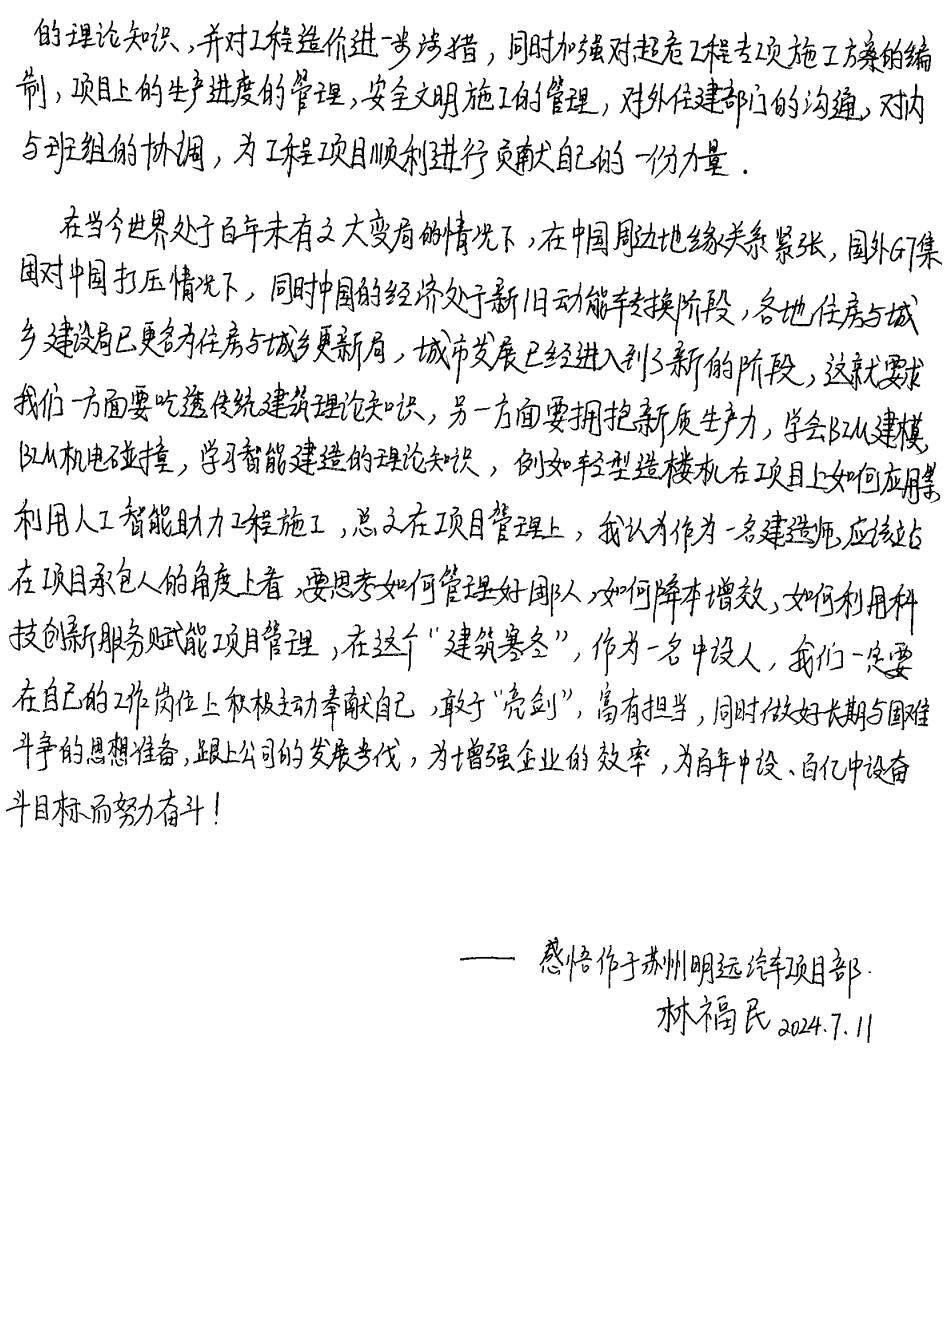 的理论知识，并对工程造价进一步涉猎，同时加强对超危工程专项施工方案的编
制，项目上的生产进度的管理，安全文明施工的管理，对外住建部门的沟通，对内
与班组的协调，为工程项目顺利进行贡献自己的一份力量.
在当今世界处于百年未有之大变局的情况下，在中国周边地缘关系紧张，国外G7集
团对中国打压情况下，同时中国的经济处于新旧动能转换阶段，各地住房与城
乡建设局已更名为住房与城乡更新局，城市发展已经进入到了新的阶段，这就要求
我们一方面要吃透传统建筑理论知识，另一方面要拥抱新质生产力，学会BIM建模，
BIM机电碰撞，学习智能建造的理论知识，例如轻型造楼机在项目上如何应用，
利用人工智能助力工程施工，总之在项目管理上，我认为作为一名建造师，应该站
在项目承包人的角度上看，要思考如何管理好团队，如何降本增效，如何利用科
技创新服务赋能项目管理，在这个“建筑寒冬”，作为一名中设人，我们一定要
在自己的工作岗位上积极主动奉献自己，敢于“亮剑”，富有担当，同时做好长期与困难
斗争的思想准备，跟上公司的发展步伐，为增强企业的效率，为百年中设、百亿中设奋
斗目标而努力奋斗！
—— 感悟作于苏州明远汽车项目部.
林福民 2024.7.11